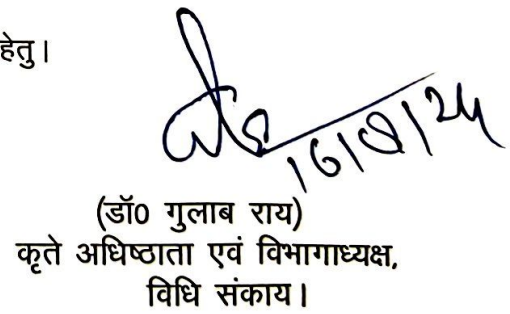 हेतु।
(डॉ0 गुलाब राय)
कृते अधिष्ठाता एवं विभागाध्यक्ष,
विधि संकाय।